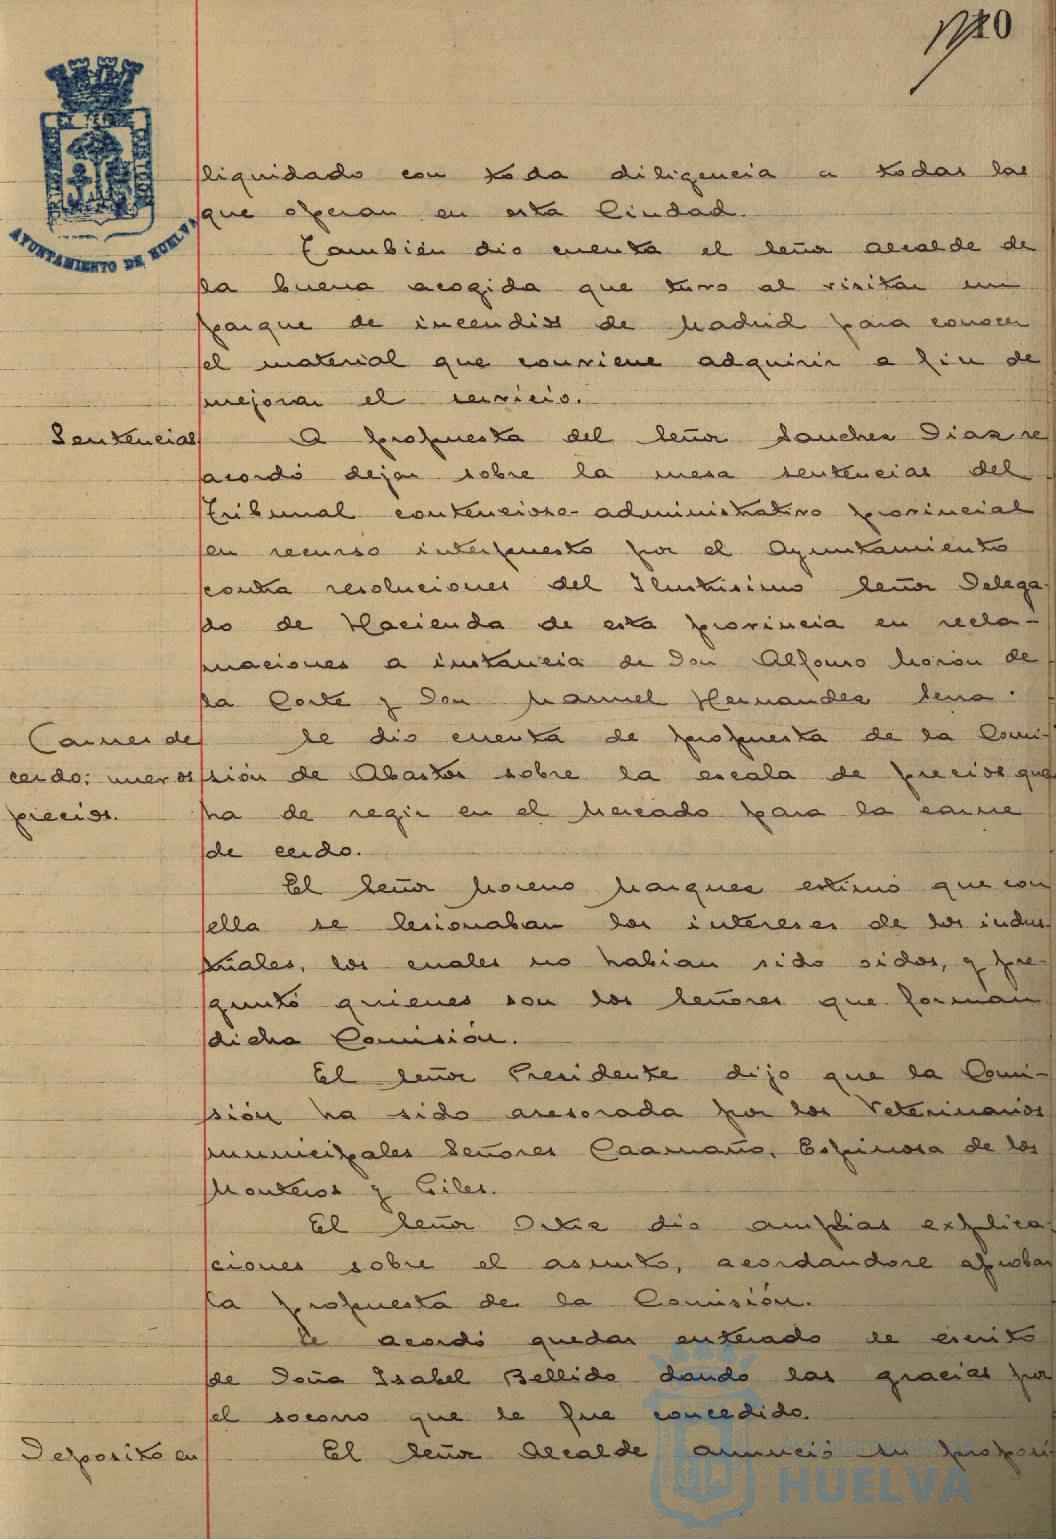 10
AYUNTAMIENTO DE HUELVA
liquidado con toda diligencia a todas las
que operan en esta Ciudad.
También dio cuenta el Señor Alcalde de
la buena acogida que tuvo al visitar un
parque de incendios de Madrid para conocer
el material que conviene adquirir a fin de
mejorar el servicio.
Sentencias A propuesta del Señor Sanchez Diaz se
acordó dejar sobre la mesa sentencias del
Tribunal contencioso-administrativo provincial
en recurso interpuesto por el Ayuntamiento
contra resoluciones del Ilustrisimo Señor Delega-
do de Hacienda de esta provincia en recla-
maciones a instancia de Don Alfonso Morón de
la Corte y Don Manuel Hernandez Sena.
Carnes de Se dio cuenta de propuesta de la Comi-
cerdo: nuevos sión de Abastos sobre la escala de precios que
precios. ha de regir en el Mercado para la carne
de cerdo.
El Señor Moreno Marquez estimó que con
ella se lesionaban los intereses de los indus-
triales, los cuales no habian sido oidos, y pre-
guntó quienes son los Señores que forman
dicha Comisión.
El Señor Presidente dijo que la Comi-
sión ha sido asesorada por los Veterinarios
municipales Señores Caamaño, Espinosa de los
Monteros y Giles.
El Señor Ortiz dio amplias explica-
ciones sobre el asunto, acordandose aprobar
la propuesta de la Comisión.
Se acordó quedar enterado de escrito
de Doña Isabel Bellido dando las gracias por
el socorro que le fue concedido.
Deposito en El Señor Alcalde anunció su proposi-
Ayuntamiento de
HUELVA